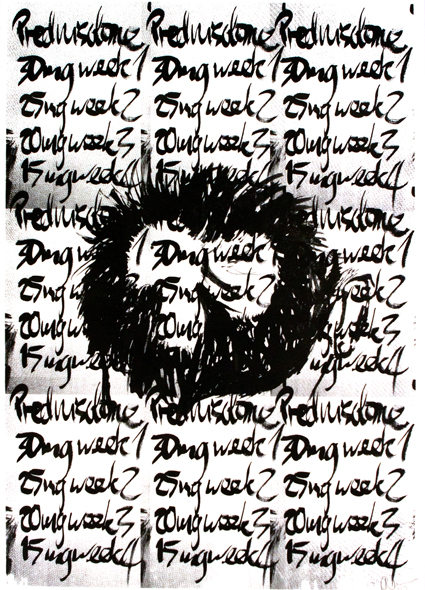 Prednisolone Prednisolone Prednisolone
30mg week 1 30mg week 1 30mg week 1
25mg week 2 25mg week 2 25mg week 2
20mg week 3 20mg week 3 20mg week 3
15mg week 4 15mg week 4 15mg week 4
30mg 30mg week 1 30mg week 1
25mg 25mg week 2 25mg week 2
20mg 20mg 20mg week 3
15mg 15mg week 4
Prednisolone Prednisolone Prednisolone
30mg week 1 30mg week 1 30mg week 1
25mg week 2 25mg week 2 25mg week 2
20mg week 3 20mg week 3 20mg week 3
15mg week 4 15mg week 4 15mg week 4